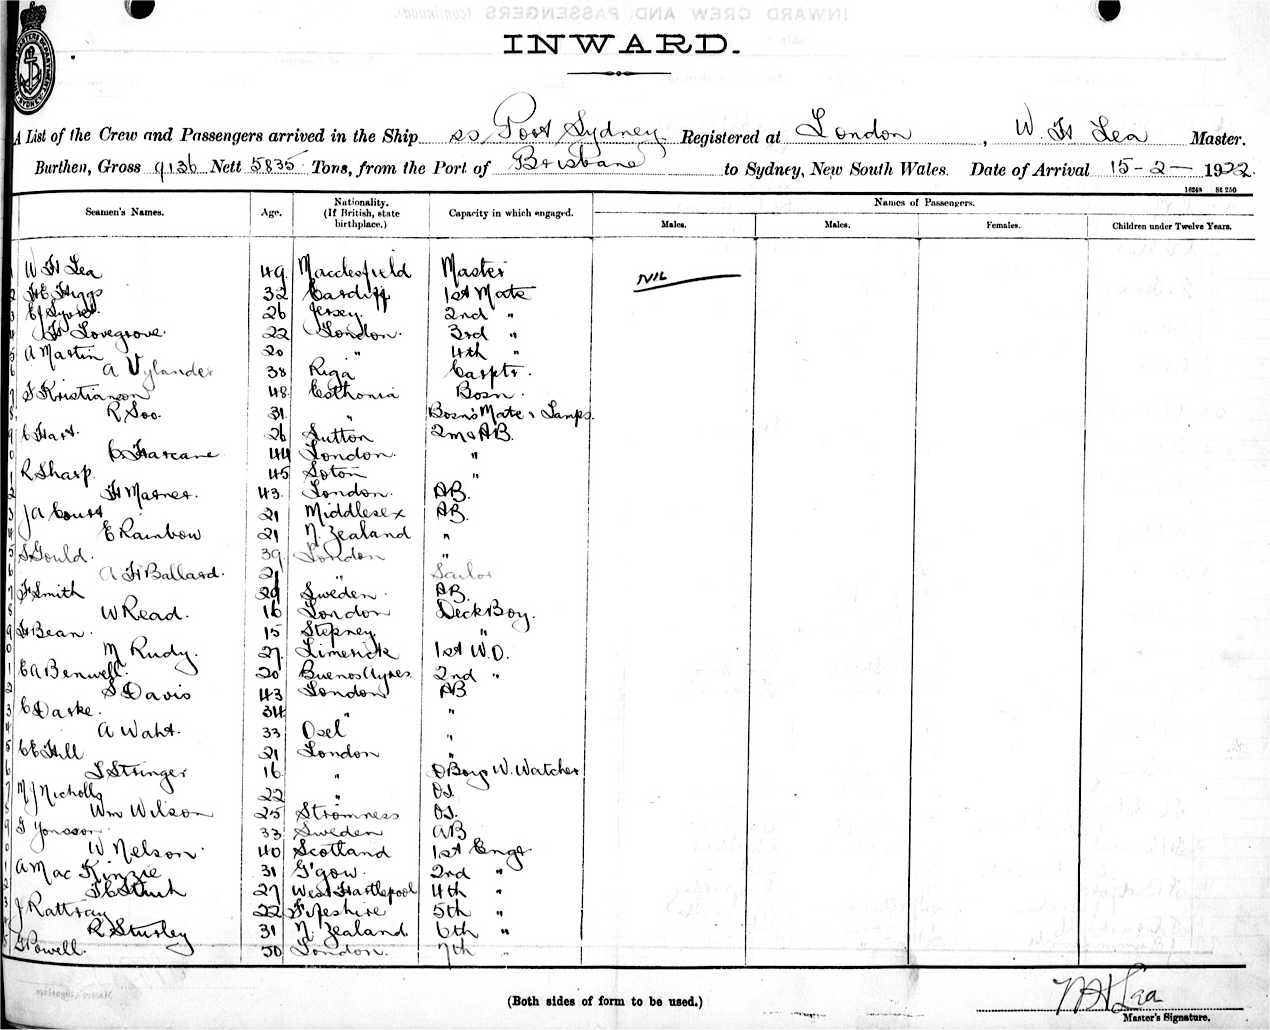 INWARD.
A List of the Crew and Passengers arrived in the Ship ss Port Sydney Registered at London, W. H Lea Master.
Burthen, Gross 9136 Nett 5835 Tons, from the Port of Brisbane to Sydney, New South Wales. Date of Arrival 15-2- 1922.
16248 St 250
Seamen's Names. Age. Nationality. (If British, state birthplace.) Capacity in which engaged. Names of Passengers.
Males. Males. Females. Children under Twelve Years.
1 W H Lea 49 Macclesfield Master NIL
2 H E Higgs 32 Cardiff 1st Mate
3 26 Jersey. 2nd "
4 H Lovegrove. 22 London. 3rd "
5 A Martin 20 " 4th "
6 A Vylander 38 Riga Carptr.
7 Kristianson 48 Esthonia Bosn.
8 R Soo. 31 " Bosn's Mate & Lamps.
9 C Hart. 26 Sutton 2nd AB.
0 C Harcane 44 London. "
1 R Sharp. 45 Soton "
2 H Marner. 43. London. AB.
3 J A Court 21 Middlesex AB.
4 E Rainbow 21 N. Zealand "
5 S Gould. 39 London "
6 A H Ballard. 21 " Sailor
7 H Smith 29 Sweden. AB.
8 W Read. 16 London Deck Boy.
9 H Bean. 15 Stepney "
0 M Rudy. 27. Limerick 1st W.O.
1 E A Benwell. 20 Buenos Ayres. 2nd "
2 S Davis 43 London AB
3 C Darke. 34 " "
4 A Waht. 33 Osel "
5 C E Hill 21 London "
6 S Stringer 16 " D Boy & W. Watcher
7 M J Nicholls 22 " OS.
8 Wm Wilson 25 Stromness OS.
9 Yonsson 33 Sweden AB
0 W Nelson. 40 Scotland 1st Engr
1 A MacKinzie 31 G'gow. 2nd "
2 27 West Hartlepool 4th "
3 J Rattray 22 Fifeshire 5th "
4 R Sturley 31 N. Zealand 6th "
5 Powell. 50 London. 7th "
(Both sides of form to be used.)
W H Lea
Master's Signature.